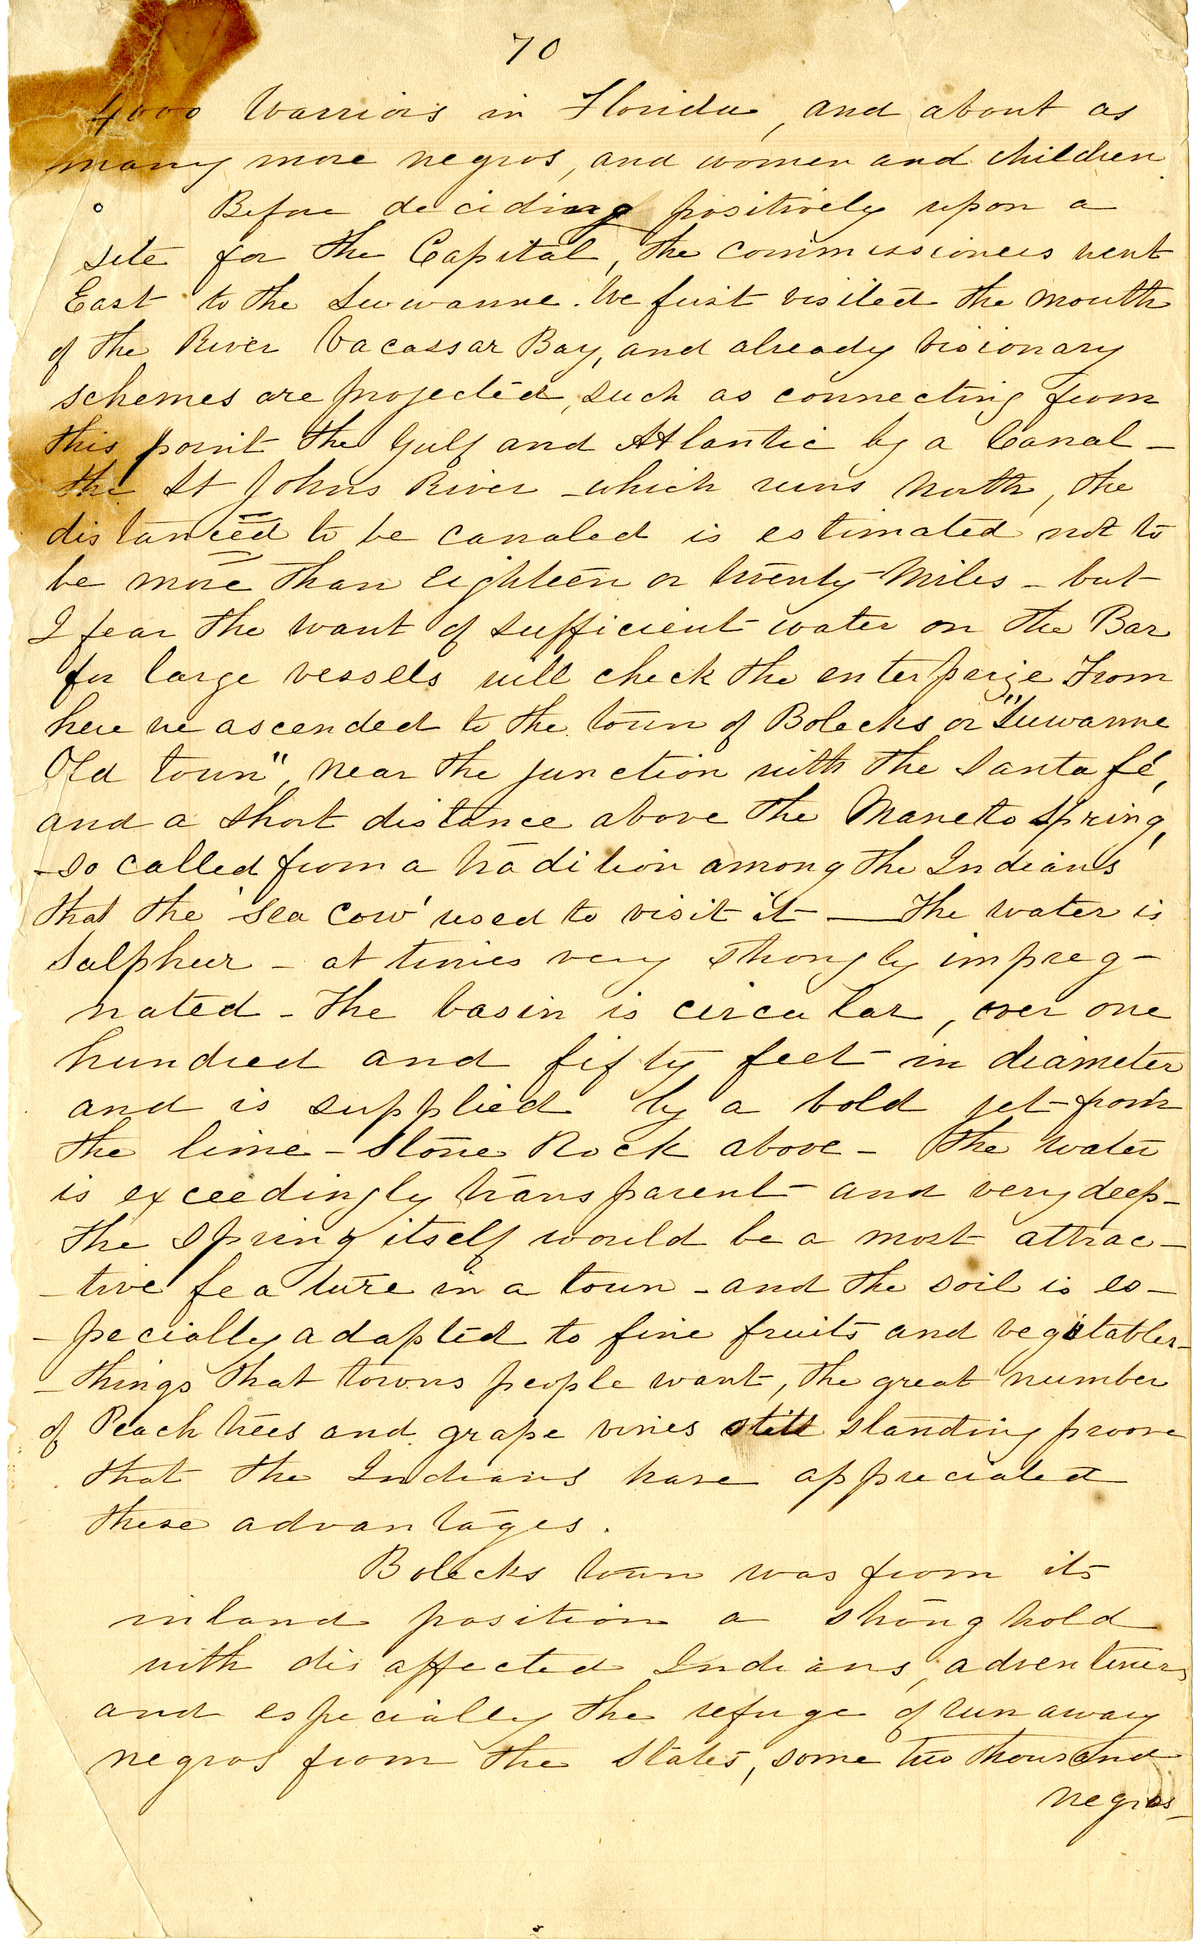 70
4000 Warriors in Florida, and about as
many more negros, and women and children.
Before deciding positively upon a
site for the Capital, the commissioners went
East to the Suwanne. We first visited the mouth
of the River Vacassar Bay, and already visionary
schemes are projected, such as connecting from
this point the Gulf and Atlantic by a Canal –
the St Johns River – which runs North, the
distanced to be canaled is estimated not to
be more than eighteen or twenty Miles – but
I fear the want of sufficient water on the Bar
for large vessels will check the enterprize From
here we ascended to the town of Bolecks or "Suwanne
Old town", near the junction with the Santa fé,
and a short distance above the Maneto Spring,
– so called from a tradition among the Indians
that the 'Sea Cow' used to visit it — The water is
Sulpheur – at times very strongly impreg –
nated – The basin is circular, over one
hundred and fifty feet in diameter
and is supplied by a bold jet from
the lime – stone Rock above – The water
is exceedingly transparent – and very deep –
The spring itself would be a most attrac –
– tive feature in a town – and the soil is es –
– pecially adapted to fine fruits and vegitables –
– things that towns people want, the great number
of Peach trees and grape vines still standing proove
that the Indians have appreciated
these advantages.
Bolecks town was from its
inland position a strong hold
with disaffected Indians, adventurers
and especially the refuge of runaway
negros from the States, some two thousand
negros –